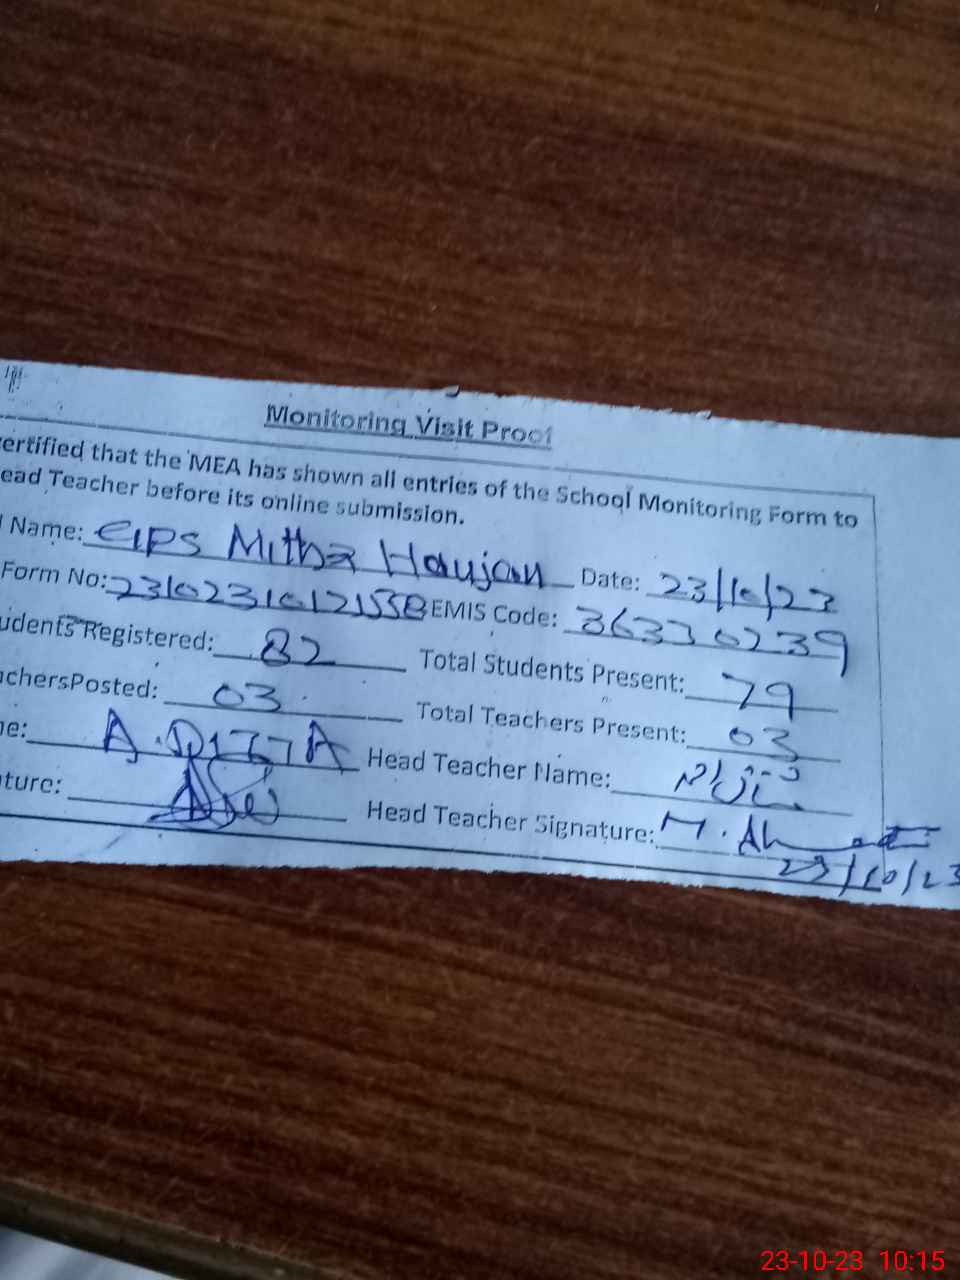 Monitoring Visit Proof
ertified that the MEA has shown all entries of the School Monitoring Form to
ead Teacher before its online submission.
Name: GPS Mitha Date: 23/10/23
Form No: EMIS Code: 36330239
udents Registered: 82 Total Students Present: 79
achersPosted: 03 Total Teachers Present: 03
e: Head Teacher Name:
ture: Head Teacher Signature:
23/10/23
23-10-23 10:15